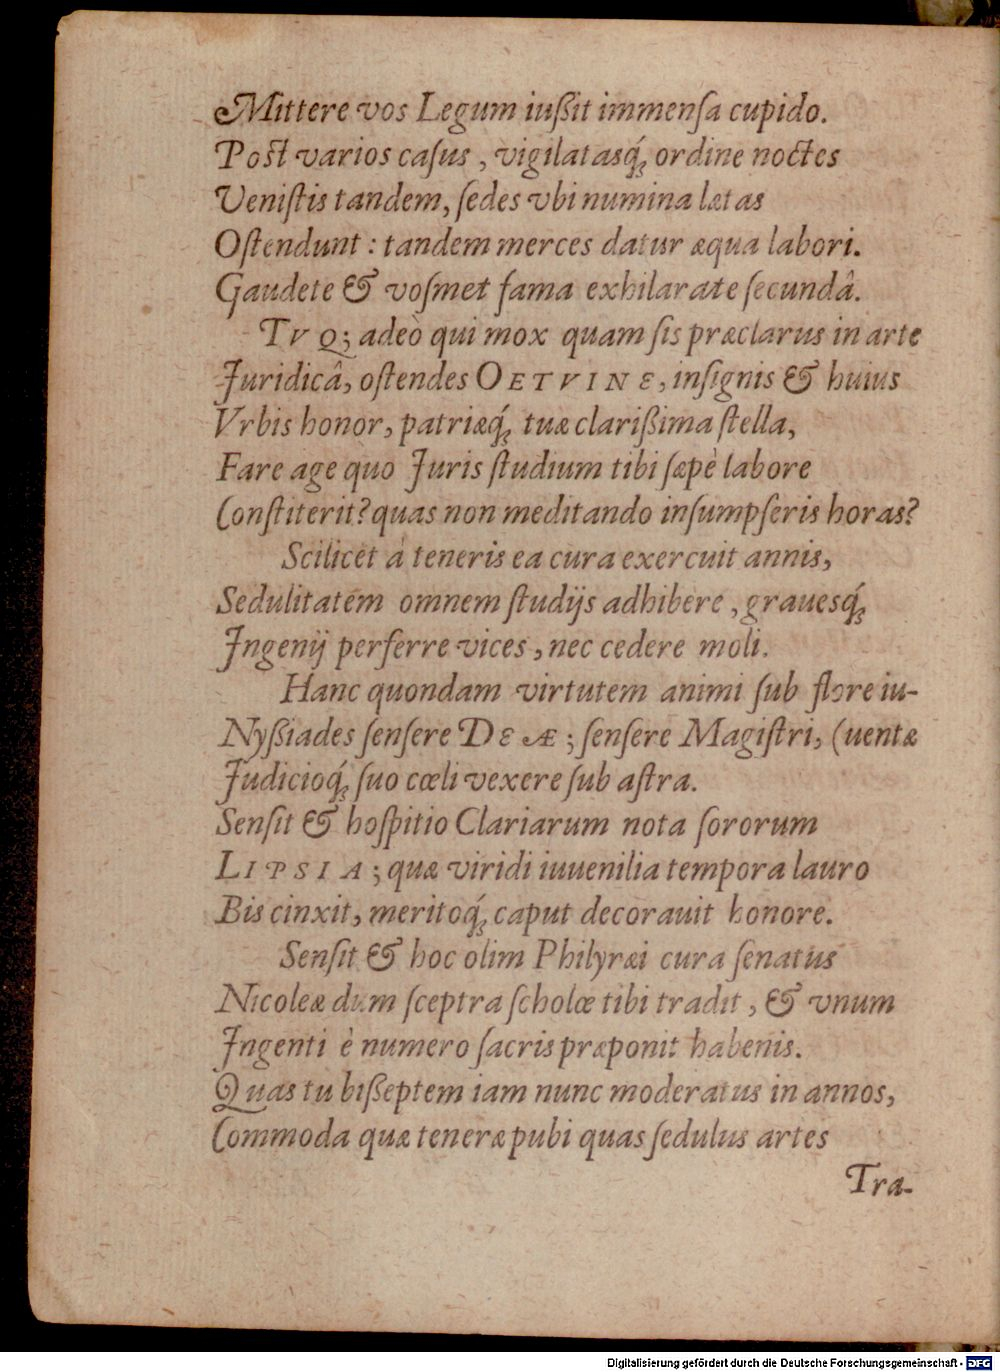 Mittere vos Legum iußit immenſa cupido.
Poſt varios caſus, vigilatasq́; ordine noctes
Veniſtis tandem, ſedes vbi numina lætas
Oſtendunt: tandem merces datur æqua labori.
Gaudete & voſmet fama exhilarate ſecundâ.
TVQ; adeò qui mox quam ſis præclarus in arte
Juridicâ, oſtendes OETVINE, inſignis & huius
Vrbis honor, patriæq́; tuæ clarißima ſtella,
Fare age quo Juris ſtudium tibi ſæpè labore
Conſtiterit? quas non meditando inſumpſeris horas?
Scilicet á teneris ea cura exercuit annis,
Sedulitatem omnem ſtudijs adhibere, grauesq́;
Jngenij perferre vices, nec cedere moli.
Hanc quondam virtutem animi ſub flore iu-
Nyßiades ſenſere DEÆ; ſenſere Magiſtri, (uentæ
Judicioq́; ſuo cœli vexere ſub aſtra.
Senſit & hoſpitio Clariarum nota ſororum
LIPSIA; quæ viridi iuuenilia tempora lauro
Bis cinxit, meritoq́; caput decorauit honore.
Senſit & hoc olim Philyræi cura ſenatus
Nicoleæ dum ſceptra ſcholœ tibi tradit, & vnum
Jngenti è numero ſacris præponit habenis.
Quas tu bißeptem iam nunc moderatus in annos,
Commoda quæ teneræ pubi quas ſedulus artes
Tra-
Digitalisierung gefördert durch die Deutsche Forschungsgemeinschaft - DFG